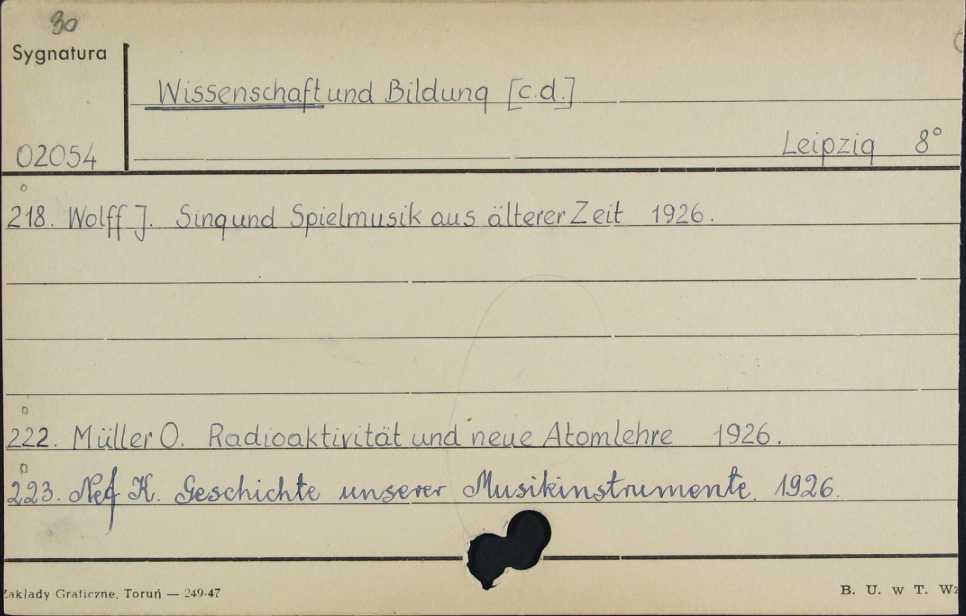 30
Sygnatura
Wissenschaft und Bildung [c.d.]
Leipzig 8°
02054
218. Wolff J. Sing und Spielmusik aus älterer Zeit 1926.
222. Müller O. Radioaktivität und neue Atomlehre 1926.
223. Nef K. Geschichte unserer Musikinstrumente. 1926.
Zakłady Graficzne, Toruń — 249-47
B. U. w T. Wz